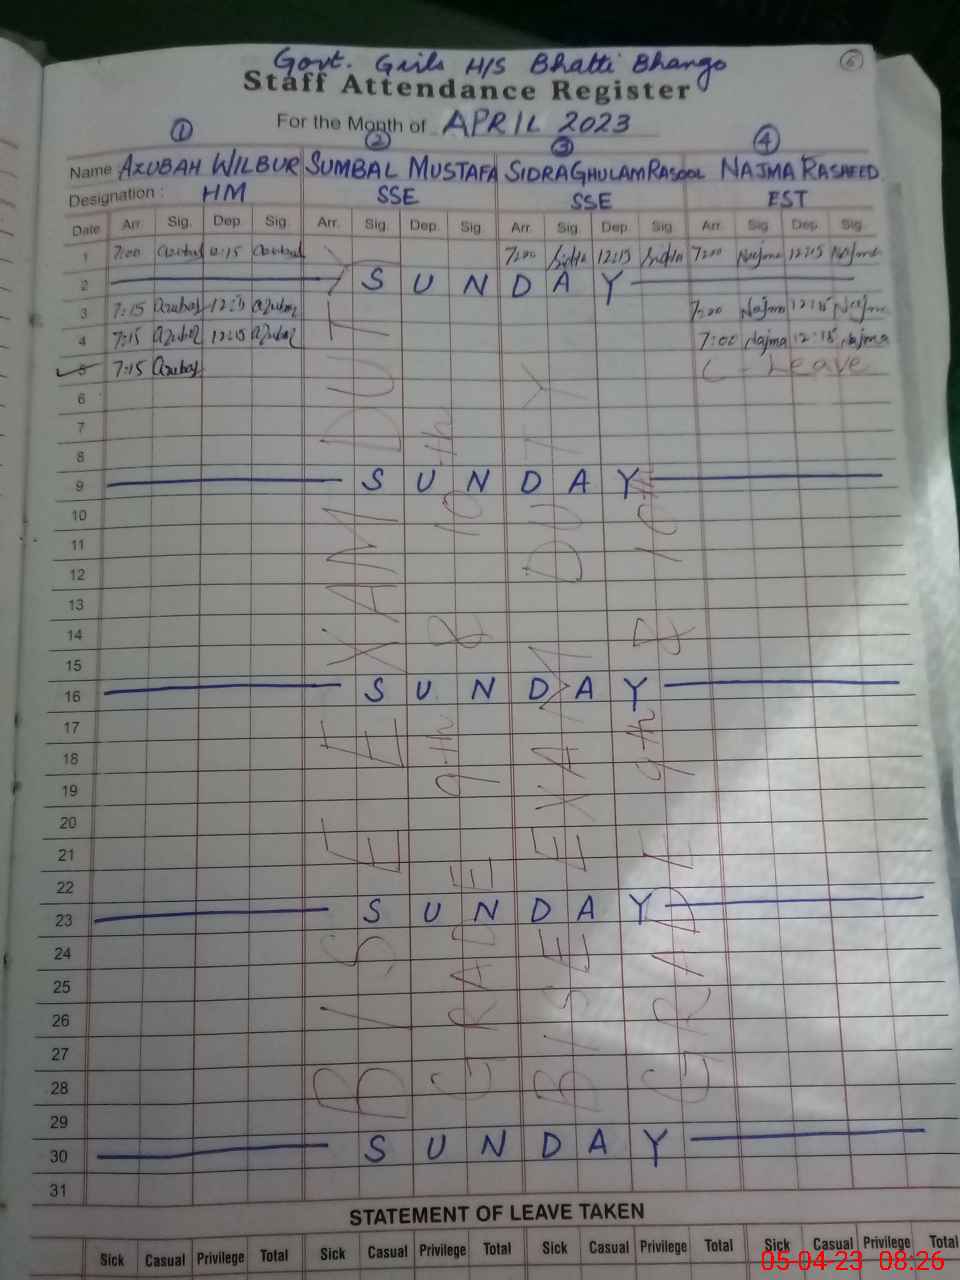 Govt. Girls H/S Bhatti Bhango
6
Staff Attendance Register
For the Month of APRIL 2023
1 2 3 4
Name AZUBAH WILBUR SUMBAL MUSTAFA SIDRA GHULAM RASOOL NAJMA RASHEED
Designation : HM SSE SSE EST
Date Arr. Sig. Dep. Sig. Arr. Sig. Dep. Sig. Arr. Sig. Dep. Sig. Arr. Sig. Dep. Sig.
1 7:00 7:00 Sidra 12:15 Sidra 7:00 Najma 12:15 Najma
2 SUNDAY
3 7:15 12:15 7:00 Najma 12:15 Najma
4 7:15 12:15 7:00 Najma 12:15 Najma
5 7:15 C - Leave
6
7
8
9 SUNDAY
10
11
12
13
14
15
16 SUNDAY
17
18
19
20
21
22
23 SUNDAY
24
25
26
27
28
29
30 SUNDAY
31
BISE EXAM DUTY
GRADE 9th & 10th
BISE EXAM DUTY
GRADE 9th & 10th
STATEMENT OF LEAVE TAKEN
Sick Casual Privilege Total Sick Casual Privilege Total Sick Casual Privilege Total Sick Casual Privilege Total
05-04-23 08:26